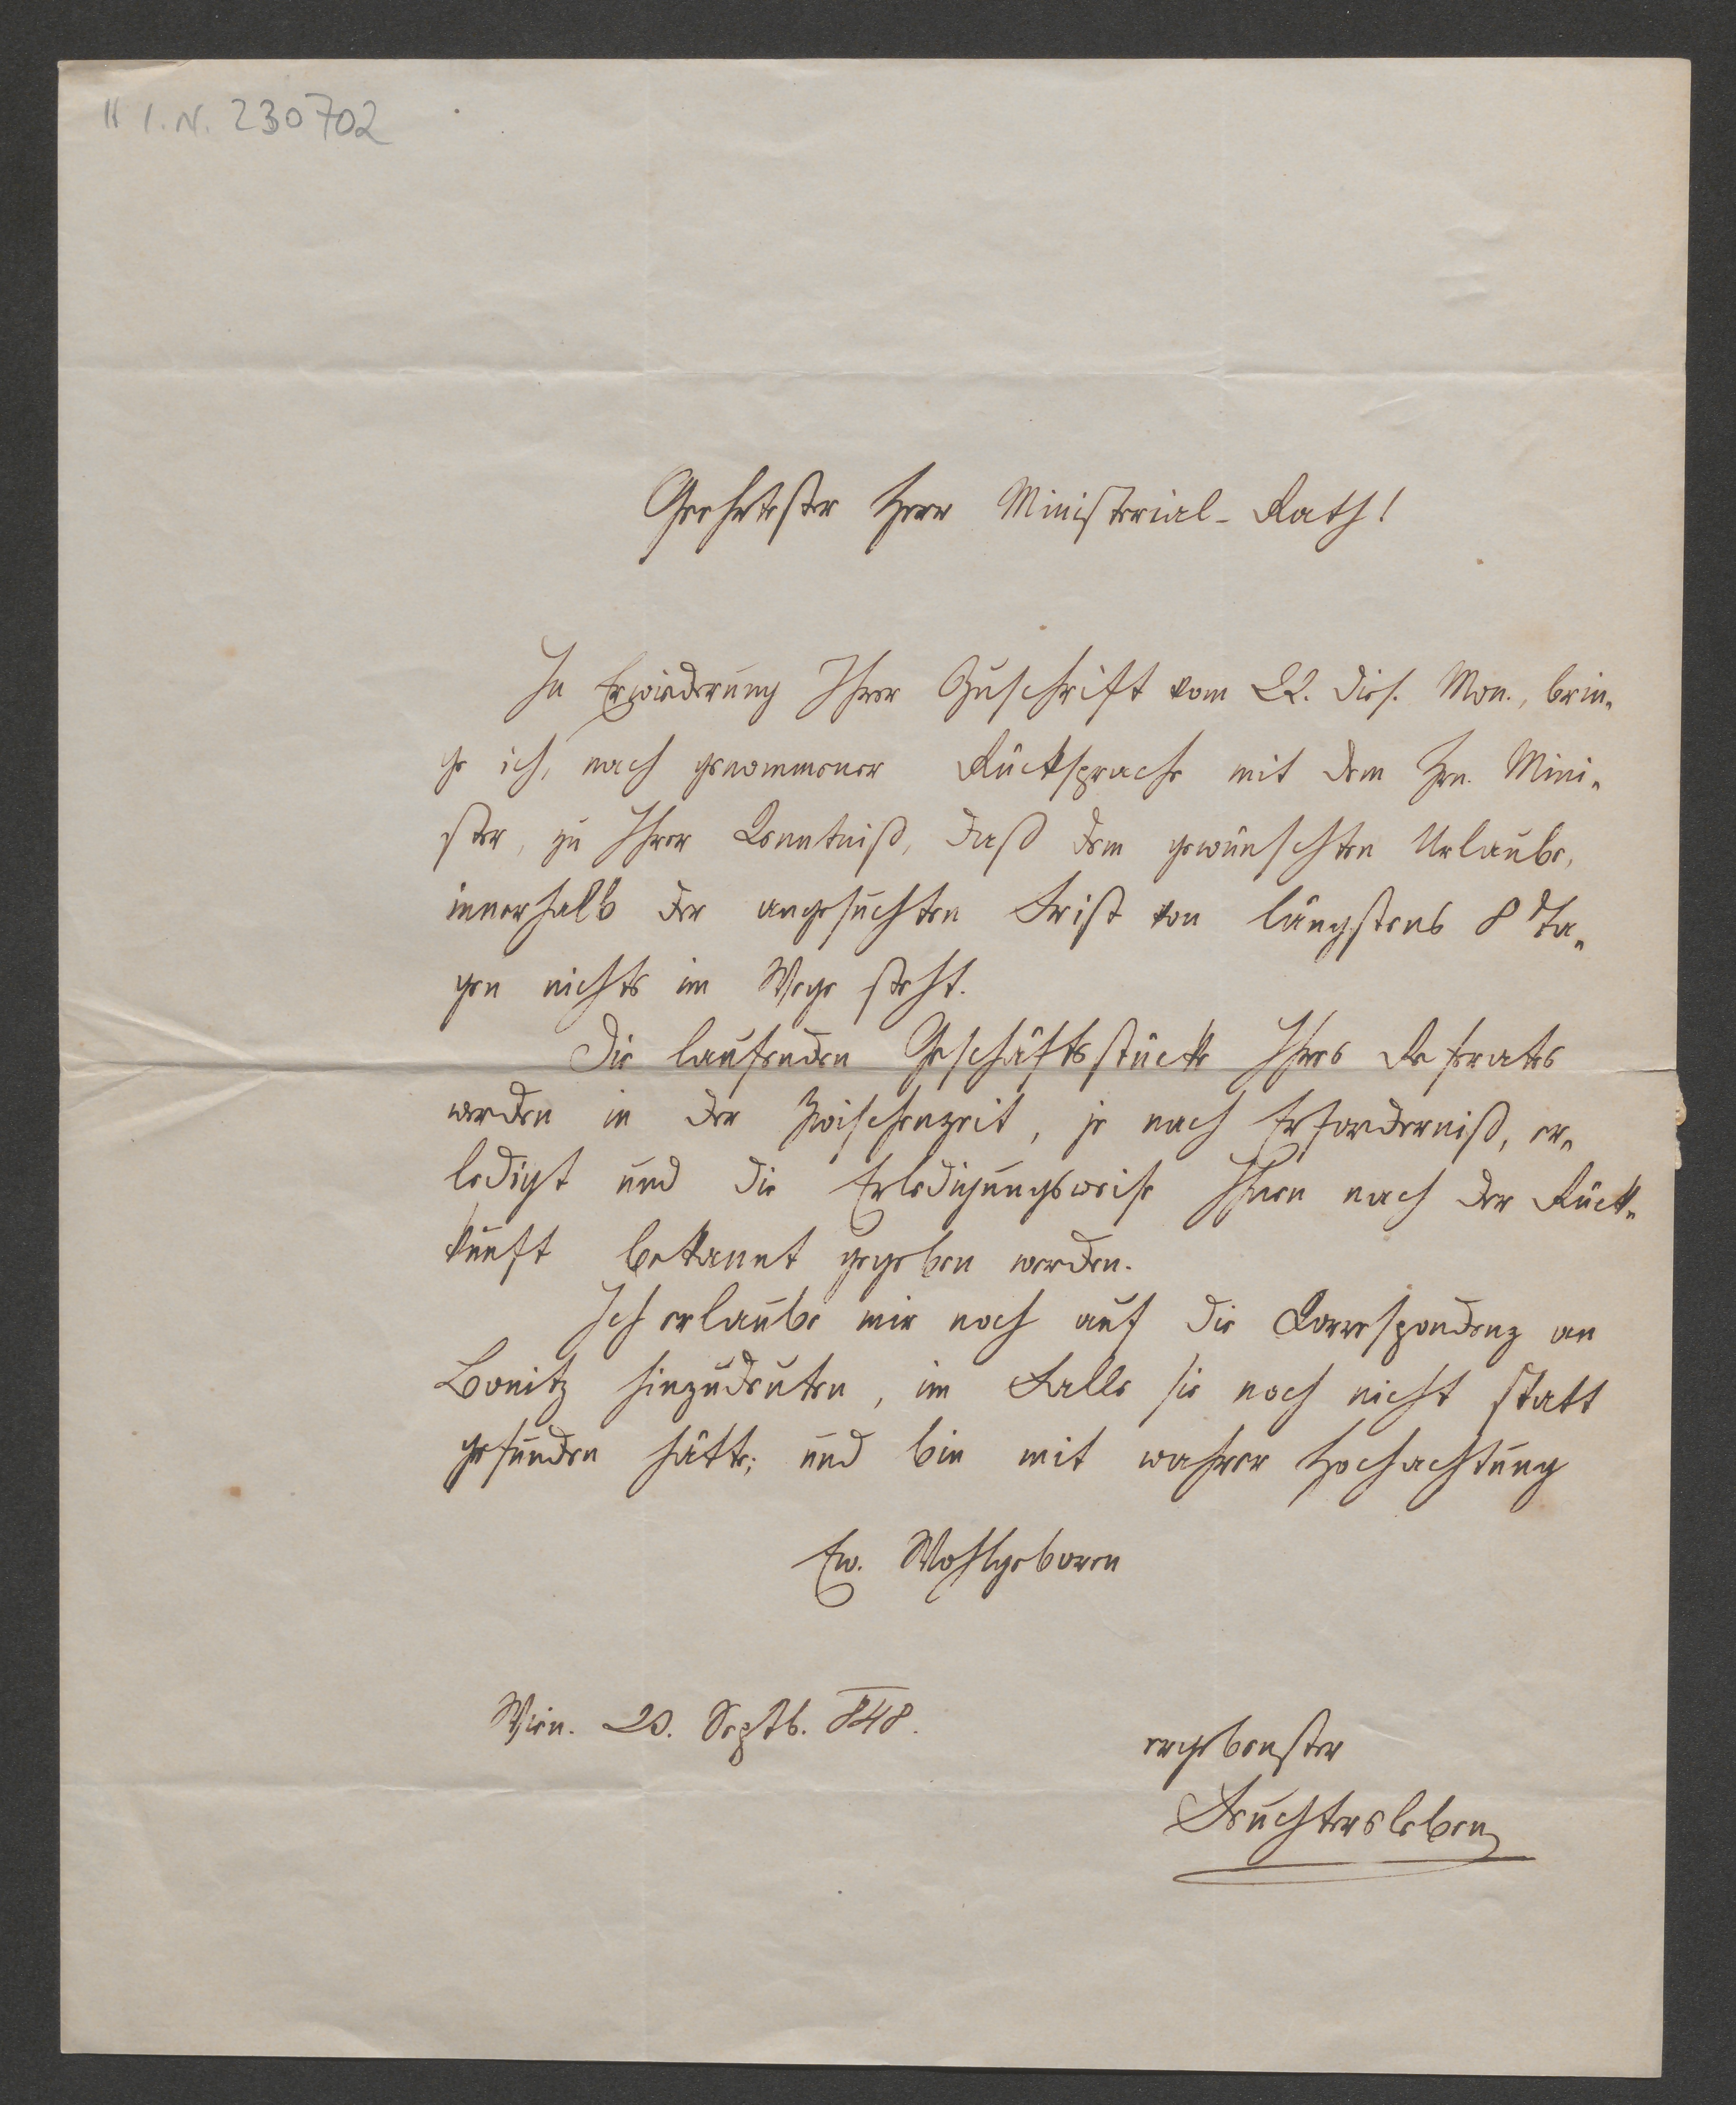 II I.N. 230702
Geehrtester Herr Ministerial-Rath!
In Erwiederung Ihrer Zuschrift vom 22. dies. Mon., brin-
ge ich, nach genommener Rücksprache mit dem Hrn. Mini-
ster, zu Ihrer Kenntniß, daß dem gewünschten Urlaube,
innerhalb der angesuchten Frist von längstens 8 Ta-
gen nichts im Wege steht.
Die laufenden Geschäftsstücke Ihres Referates
werden in der Zwischenzeit, je nach Erforderniß, er-
ledigt und die Erledigungsweise Ihnen nach der Rück-
kunft bekannt gegeben werden.
Ich erlaube mir noch auf die Korrespondenz an
Bonitz hinzudeuten, im Falle sie noch nicht statt
gefunden hätte; und bin mit wahrer Hochachtung
Ew. Wohlgeboren
Wien. 23. Septb. 848.
ergebenster
Feuchtersleben